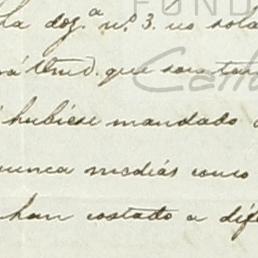 FUND
la doz.ª n.º 3. no sola
Cata
rá Vmd. que sea tan
hubiese mandado
nunca medias como
han costado a dife